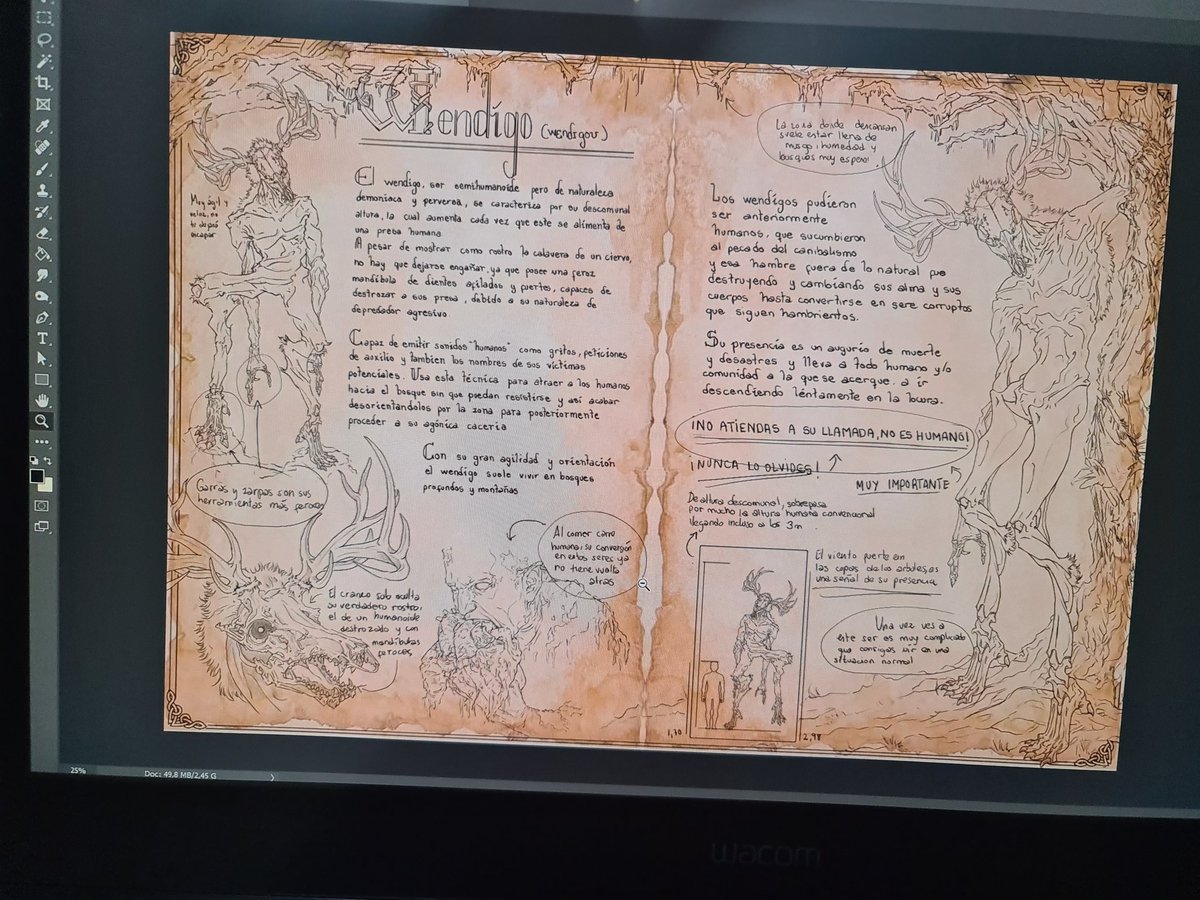 Wendigo (wendigos)
Muy ágil y
veloz, no
te dejará
escapar
El wendigo, ser semihumanoide pero de naturaleza
demoniaca y perversa, se caracteriza por su descomunal
altura, la cual aumenta cada vez que este se alimenta de
una presa humana.
A pesar de mostrar como rostro la calavera de un ciervo,
no hay que dejarse engañar, ya que posee una feroz
mandibula de dientes afilados y fuertes, capaces de
destrozar a sus presa, debido a su naturaleza de
depredador agresivo.
Capaz de emitir sonidos "humanos" como gritos, peticiones
de auxilio y tambien los nombres de sus víctimas
potenciales. Usa esta técnica para atraer a los humanos
hacia el bosque sin que puedan resistirse y así acabar
desorientandolos por la zona para posteriormente
proceder a su agónica caceria
Con su gran agilidad y orientación
el wendigo suele vivir en bosques
profundos y montañas
Garras y zarpas son sus
herramientas más feroces
El craneo solo oculta
su verdadero rostro,
el de un humanoide
destrozado y con
mandibulas
feroces
Al comer carne
humana, su conversión
en estos seres ya
no tiene vuelta
atras
La zona donde descansan
suele estar llena de
musgo, humedad y
bosques muy espeso
Los wendigos pudieron
ser anteriormente
humanos, que sucumbieron
al pecado del canibalismo
y esa hambre fuera de lo natural fue
destruyendo y cambiando sus alma y sus
cuerpos hasta convertirse en sere corruptos
que siguen hambrientos.
Su presencia es un augurio de muerte
y desastres y lleva a todo humano y/o
comunidad a la que se acerque a ir
descendiendo léntamente en la locura.
¡NO ATIENDAS A SU LLAMADA, NO ES HUMANO!
¡NUNCA LO OLVIDES!
MUY IMPORTANTE
De altura descomunal, sobrepasa
por mucho la altura humana convencional
llegando incluso a los 3m
El viento fuerte en
las copas de los arboles, es
una señal de su presencia
Una vez ves a
este ser es muy complicado
que consigas vivir en una
situacion normal
1,70
2,98
25%
Doc: 49,8 MB/2,45 G
wacom